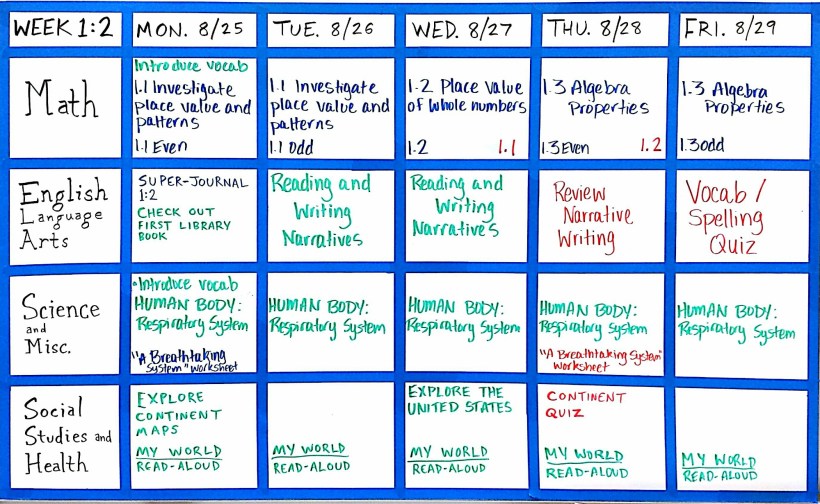 WEEK 1:2
MON. 8/25
TUE. 8/26
WED. 8/27
THU. 8/28
FRI. 8/29
Math
Introduce vocab
1.1 Investigate
place value and
patterns
1.1 Even
1.1 Investigate
place value and
patterns
1.1 odd
1.2 Place value
of whole numbers
1.2 1.1
1.3 Algebra
Properties
1.3 Even 1.2
1.3 Algebra
Properties
1.3 odd
English
Language
Arts
SUPER-JOURNAL
1:2
CHECK OUT
FIRST LIBRARY
BOOK
Reading and
Writing
Narratives
Reading and
Writing
Narratives
Review
Narrative
Writing
Vocab /
Spelling
Quiz
Science
and
Misc.
•Introduce vocab
HUMAN BODY:
Respiratory System
"A Breathtaking
System" worksheet
HUMAN BODY:
Respiratory System
HUMAN BODY:
Respiratory System
HUMAN BODY:
Respiratory System
"A Breathtaking System"
worksheet
HUMAN BODY:
Respiratory System
Social
Studies and
Health
EXPLORE
CONTINENT
MAPS
MY WORLD
READ-ALOUD
MY WORLD
READ-ALOUD
EXPLORE THE
UNITED STATES
MY WORLD
READ-ALOUD
CONTINENT
QUIZ
MY WORLD
READ-ALOUD
MY WORLD
READ-ALOUD